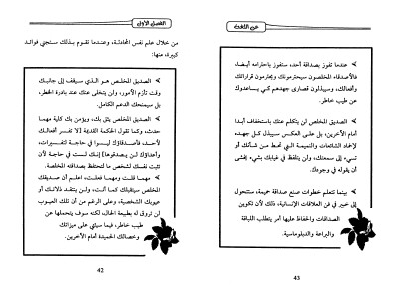 الفصل الأول
من خلال علم نفس المحادثة، وعندما نقوم بذلك ستجني فوائد
كبيرة، منها:
الصديق المخلص هو الذي سيقف إلى جانبك
وقت تأزم الأمور، ولن يتخلى عنك عند بادرة الخطر،
بل سيمنحك الدعم الكامل.
الصديق المخلص يثق بك، ويؤمن بك كلية مهما
حدث، وكما تقول الحكمة القديمة لا تفسر أفعالك
لأحد، فأصدقاؤك ليسوا في حاجة لتفسيرات،
وأعداؤك لن يصدقوها! إنك لست في حاجة لأن
تثبت نفسك لشخص ما لتحتفظ بصداقته المخلصة.
مهما قلت ومهما فعلت، اعلم أن صديقك
المخلص سيتقبلك كما أنت، ولن ينتقد ذلاتك أو
عيوبك الشخصية، وعلى الرغم من أن تلك العيوب
لن تروق له بطبيعة الحال، لكنه سوف يتحملها عن
طيب خاطر، فيما سيثني على ميزاتك
وخصالك الحميدة أمام الآخرين.
42
عندما تفوز بصداقة أحد، ستفوز باحترامه أيضا،
فالأصدقاء المخلصون سيحترمونك ويحترمون قراراتك
وأفعالك، وسيبذلون قصارى جهدهم كي يساعدوك
عن طيب خاطر.
الصديق المخلص لن يتكلم عنك باستخفاف أبدا
أمام الآخرين، بل على العكس سيبذل كل جهده،
لإخماد الشائعات والنميمة التي تحط من شأنك أو
تسيء إلى سمعتك، ولن يتلفظ في غيابك بشيء يخشى
أن يقوله في وجودك.
بينما تتعلم خطوات صنع صداقة حميمة، ستتحول
إلى خبير في فن العلاقات الإنسانية، ذلك لأن تكوين
الصداقات والحفاظ عليها أمر يتطلب اللباقة
والبراعة والدبلوماسية.
43